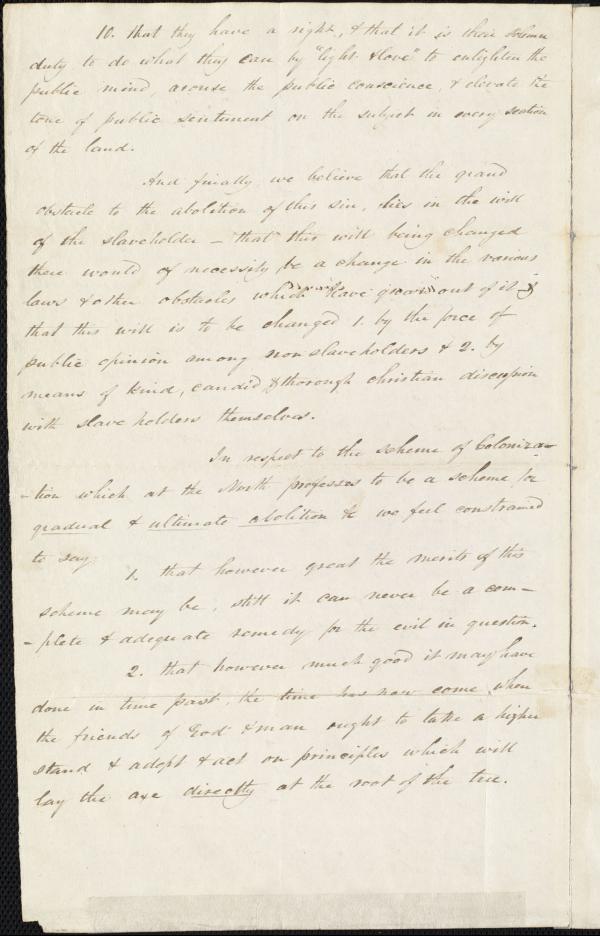 10. that they have a right, & that it is their solemn
duty to do what they can by "light & love" to enlighten the
public mind, arouse the public conscience, & elevate the
tone of public sentiment on the subject in every section
of the land.
And finally we believe that the grand
obstacle to the abolition of this sin, lies in the will
of the slaveholder – that this will being changed
there would of necessity be a change in the various
laws & other obstacles which have grown out of it &
that this will is to be changed 1. by the force of
public opinion among non slaveholders & 2. by
means of kind, candid & thorough christian discussion
with slave holders themselves.
In respect to the scheme of Coloniza-
-tion which at the North professes to be a scheme for
gradual & ultimate abolition &c we feel constrained
to say
1. that however great the merits of this
scheme may be, still it can never be a com-
-plete & adequate remedy for the evil in question.
2. that however much good it may have
done in time past, the time has now come when
the friends of God & man ought to take a higher
stand & adopt & act on principles which will
lay the axe directly at the root of the tree.